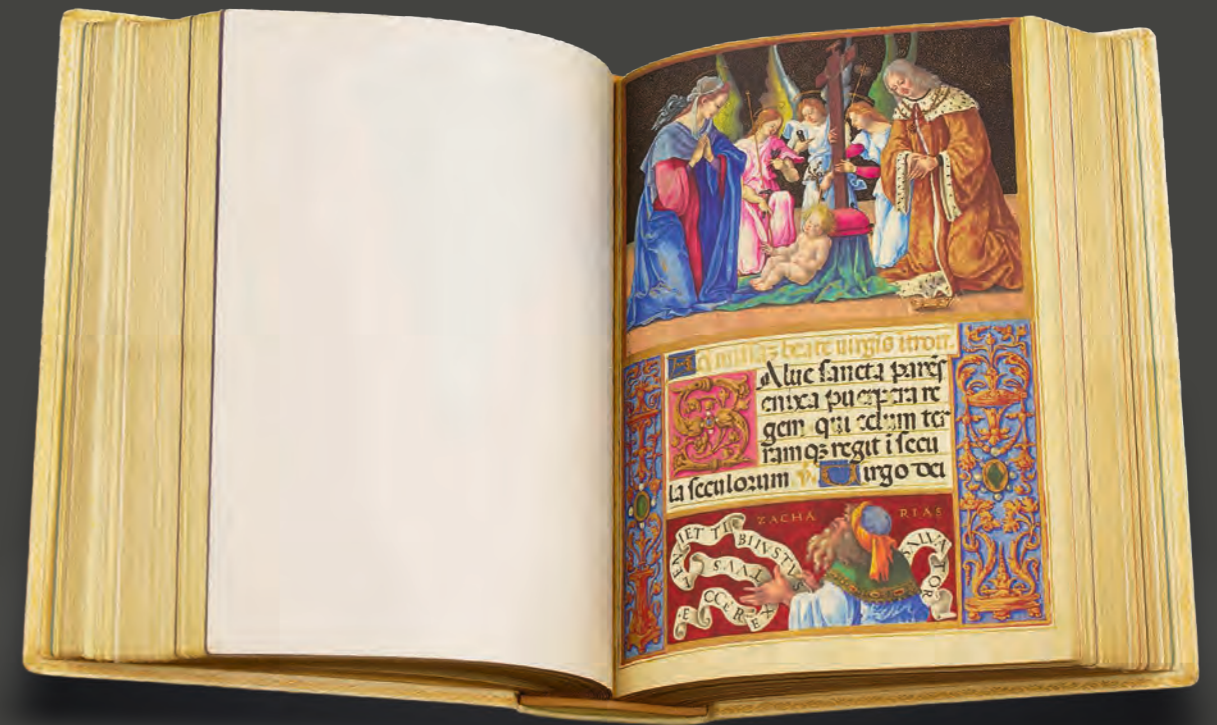 beate uirgis itroit.
Salue sancta parēs
enixa puerpera re
gem qui celum ter
ramqꝫ regit i secu
la seculorum ℣. Uirgo dei
ZACHA RIAS
ECCE REX
TVVS
VENIET TIBI IVSTVS
SALVATOR